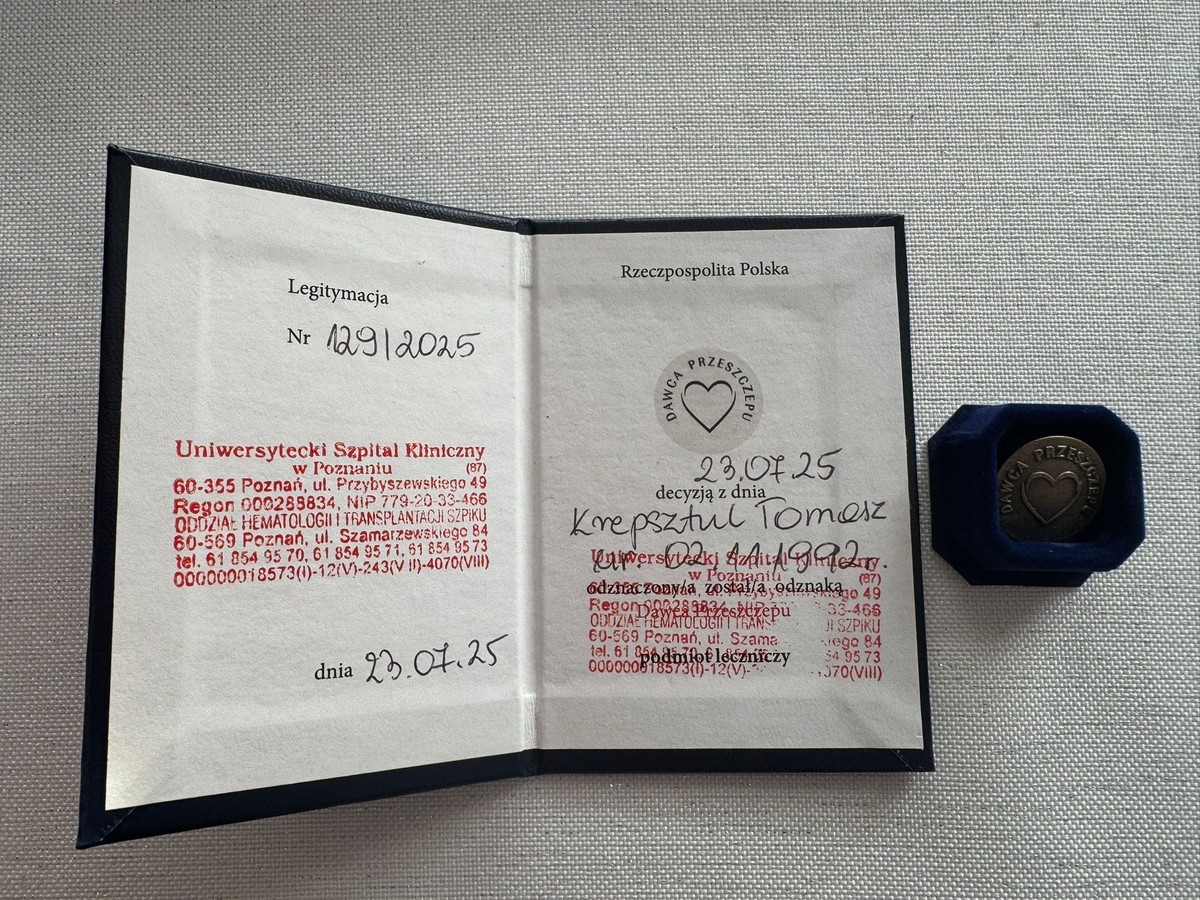 Legitymacja
Nr 129/2025
Uniwersytecki Szpital Kliniczny
w Poznaniu (87)
60-355 Poznań, ul. Przybyszewskiego 49
Regon 000288834, NIP 779-20-33-466
ODDZIAŁ HEMATOLOGII I TRANSPLANTACJI SZPIKU
60-569 Poznań, ul. Szamarzewskiego 84
tel. 61 854 95 70, 61 854 95 71, 61 854 95 73
000000018573(I)-12(V)-243(VII)-4070(VIII)
dnia 23.07.25
Rzeczpospolita Polska
DAWCA PRZESZCZEPU
23.07.25
decyzją z dnia
Krepsztul Tomasz
ur. 02.11.1992r.
Uniwersytecki Szpital Kliniczny
w Poznaniu (87)
odznaczony/a został/a odznaką
60-355 Poznań, ul. Przybyszewskiego 49
Regon 000288834, NIP 33-466
Dawca Przeszczepu
ODDZIAŁ HEMATOLOGII I TRANS JI SZPIKU
60-569 Poznań, ul. Szama ego 84
tel. 61 854 95 70, 6 54 95 73
podmiot leczniczy
000000018573(I)-12(V)- 070(VIII)
DAWCA PRZESZCZEPU